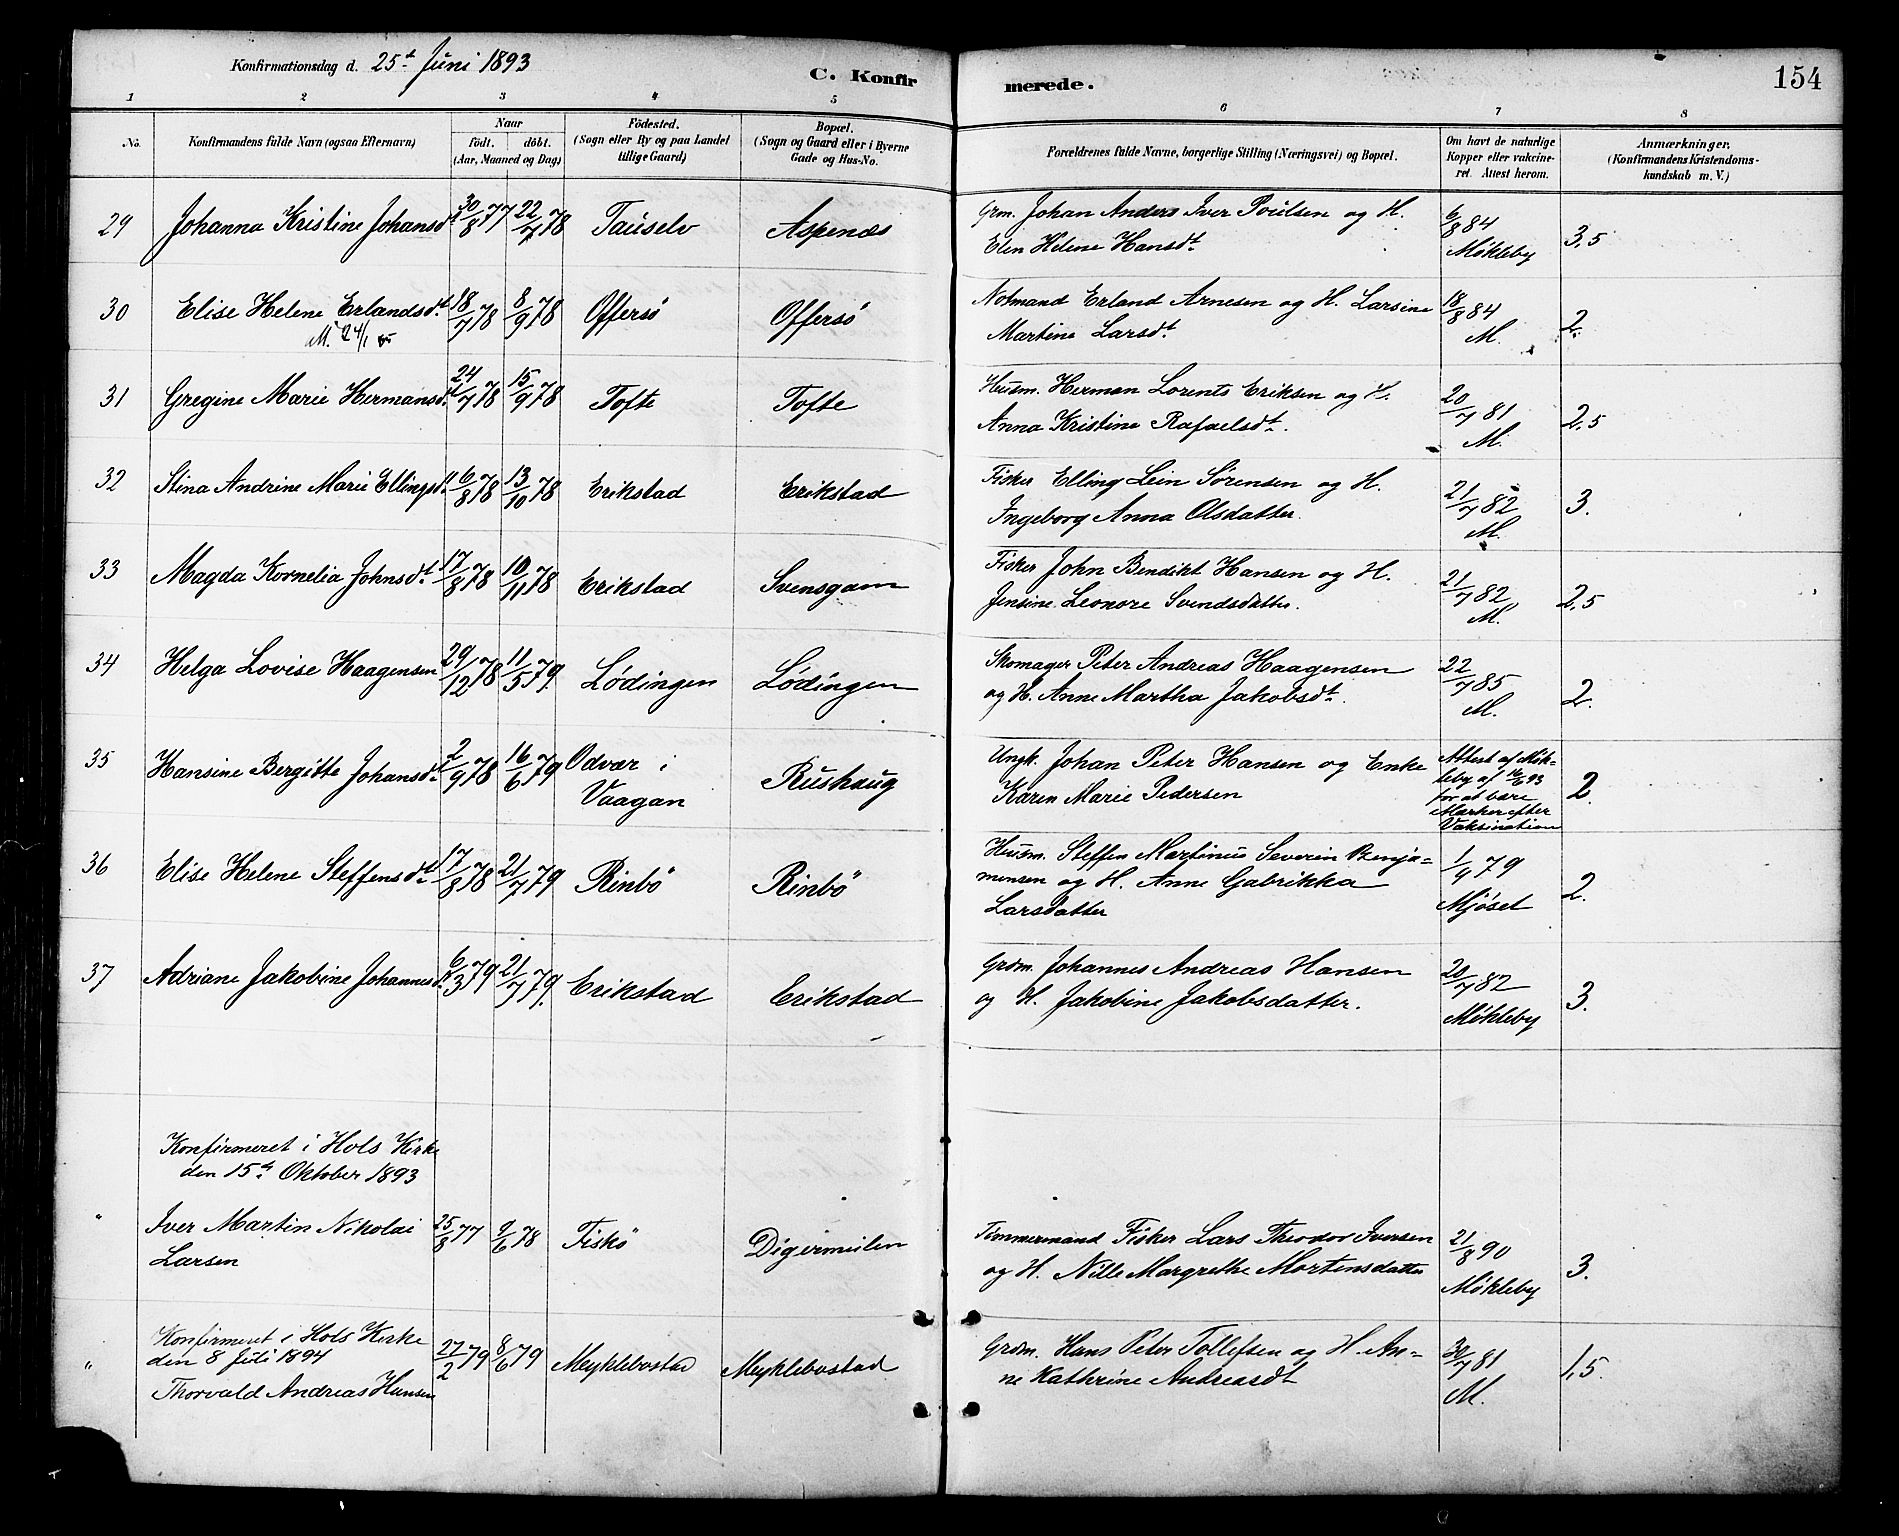 Konfirmationsdag d. 25.de Juni 1893
C. Konfir merede.
154
1 2 3 4 5 6 7 8
No.
Konfirmandens fulde Navn (ogsaa Efternavn)
Naar
födt. döbt.
(Aar, Maaned og Dag)
Födested.
(Sogn eller By og paa Landet
tillige Gaard)
Bopæl.
(Sogn og Gaard eller i Byerne
Gade og Hus-No.
Forældrenes fulde Navne, borgerlige Stilling (Næringsvei) og Bopæl.
Om havt de naturlige
Kopper eller vakcine-
ret. Attest herom.
Anmærkninger.
(Konfirmandens Kristendoms-
kundskab m. V.)
29 Johanna Kristine Johansdt. 30/8 77 22/7 78 Tauselv Aspenæs
Grm. Johan Anders Iver Poulsen og H.
Elen Helene Hansdt.
6/8 84
Møkleby
3,5
30 Elise Helene Erlandsdt. 18/7 78 8/9 78 Offersö Offersö
Notmand Erland Arnesen og H. Larsine
Martine Larsdt.
18/8 84
M.
2.
31 Gregine Marie Hermansdt. 24/7 78 15/9 78 Tofte Tofte
Husm. Herman Lorents Eriksen og H.
Anna Kristine Rafaelsdt.
20/7 81
M.
2,5
32 Stina Andrine Marie Ellingsdt. 6/8 78 13/10 78 Erikstad Erikstad
Fisker Elling Lein Sørensen og H.
Ingeborg Anna Olsdatter.
21/7 82
M.
3.
33 Magda Kornelia Johnsdt. 17/8 78 10/11 78 Erikstad Svensgam
Fisker John Bendikt Hansen og H.
Jensine Leonore Svendsdatter.
21/7 82
M.
2,5
34 Helga Lovise Haagensen 29/12 78 11/5 79. Lødingen Lødingen
Skomager Peter Andreas Haagensen
og H. Anne Martha Jakobsdt.
22/7 85
M.
2.
35 Hansine Bergitte Johansdt. 2/9 78 16/6 79 Odvær i
Vaagan
Rushaug
Ungk. Johan Peter Hansen og Enke
Karen Marie Pedersen
Attest af Møk-
leby af 16/6 93
for at bære
Marker efter
Vaksination
2.
36 Elise Helene Steffensdt. 17/8 78 21/7 79 Rinbö Rinbö
Husm. Steffen Martinus Severin Benja-
mensen og H. Anne Gabrikka
Larsdatter
1/9 79
Mjøset
2.
37 Adriane Jakobine Johannesdt. 6/3 79 21/7 79. Erikstad Erikstad
Grdm. Johannes Andreas Hansen
og H. Jakobine Jakobsdatter.
20/7 82
Møkleby
3.
Konfirmeret i Hols Kirke
den 15de Oktober 1893
" Iver Martin Nikolai
Larsen
25/8 77 9/6 78 Fiskö Digermulen
Timmermand Fisker Lars Theodor Iversen
og H. Nille Margrethe Mortensdatter
21/8 90
Møkleby
3.
Konfirmeret i Hols Kirke
den 8 Juli 1894
" Thorvald Andreas Hansen
27/2 79 8/6 79 Meyklebostad Meyklebostad
Grdm. Hans Peter Tollefsen og H. An-
ne Kathrine Andreasdt
30/7 81
M.
1,5.